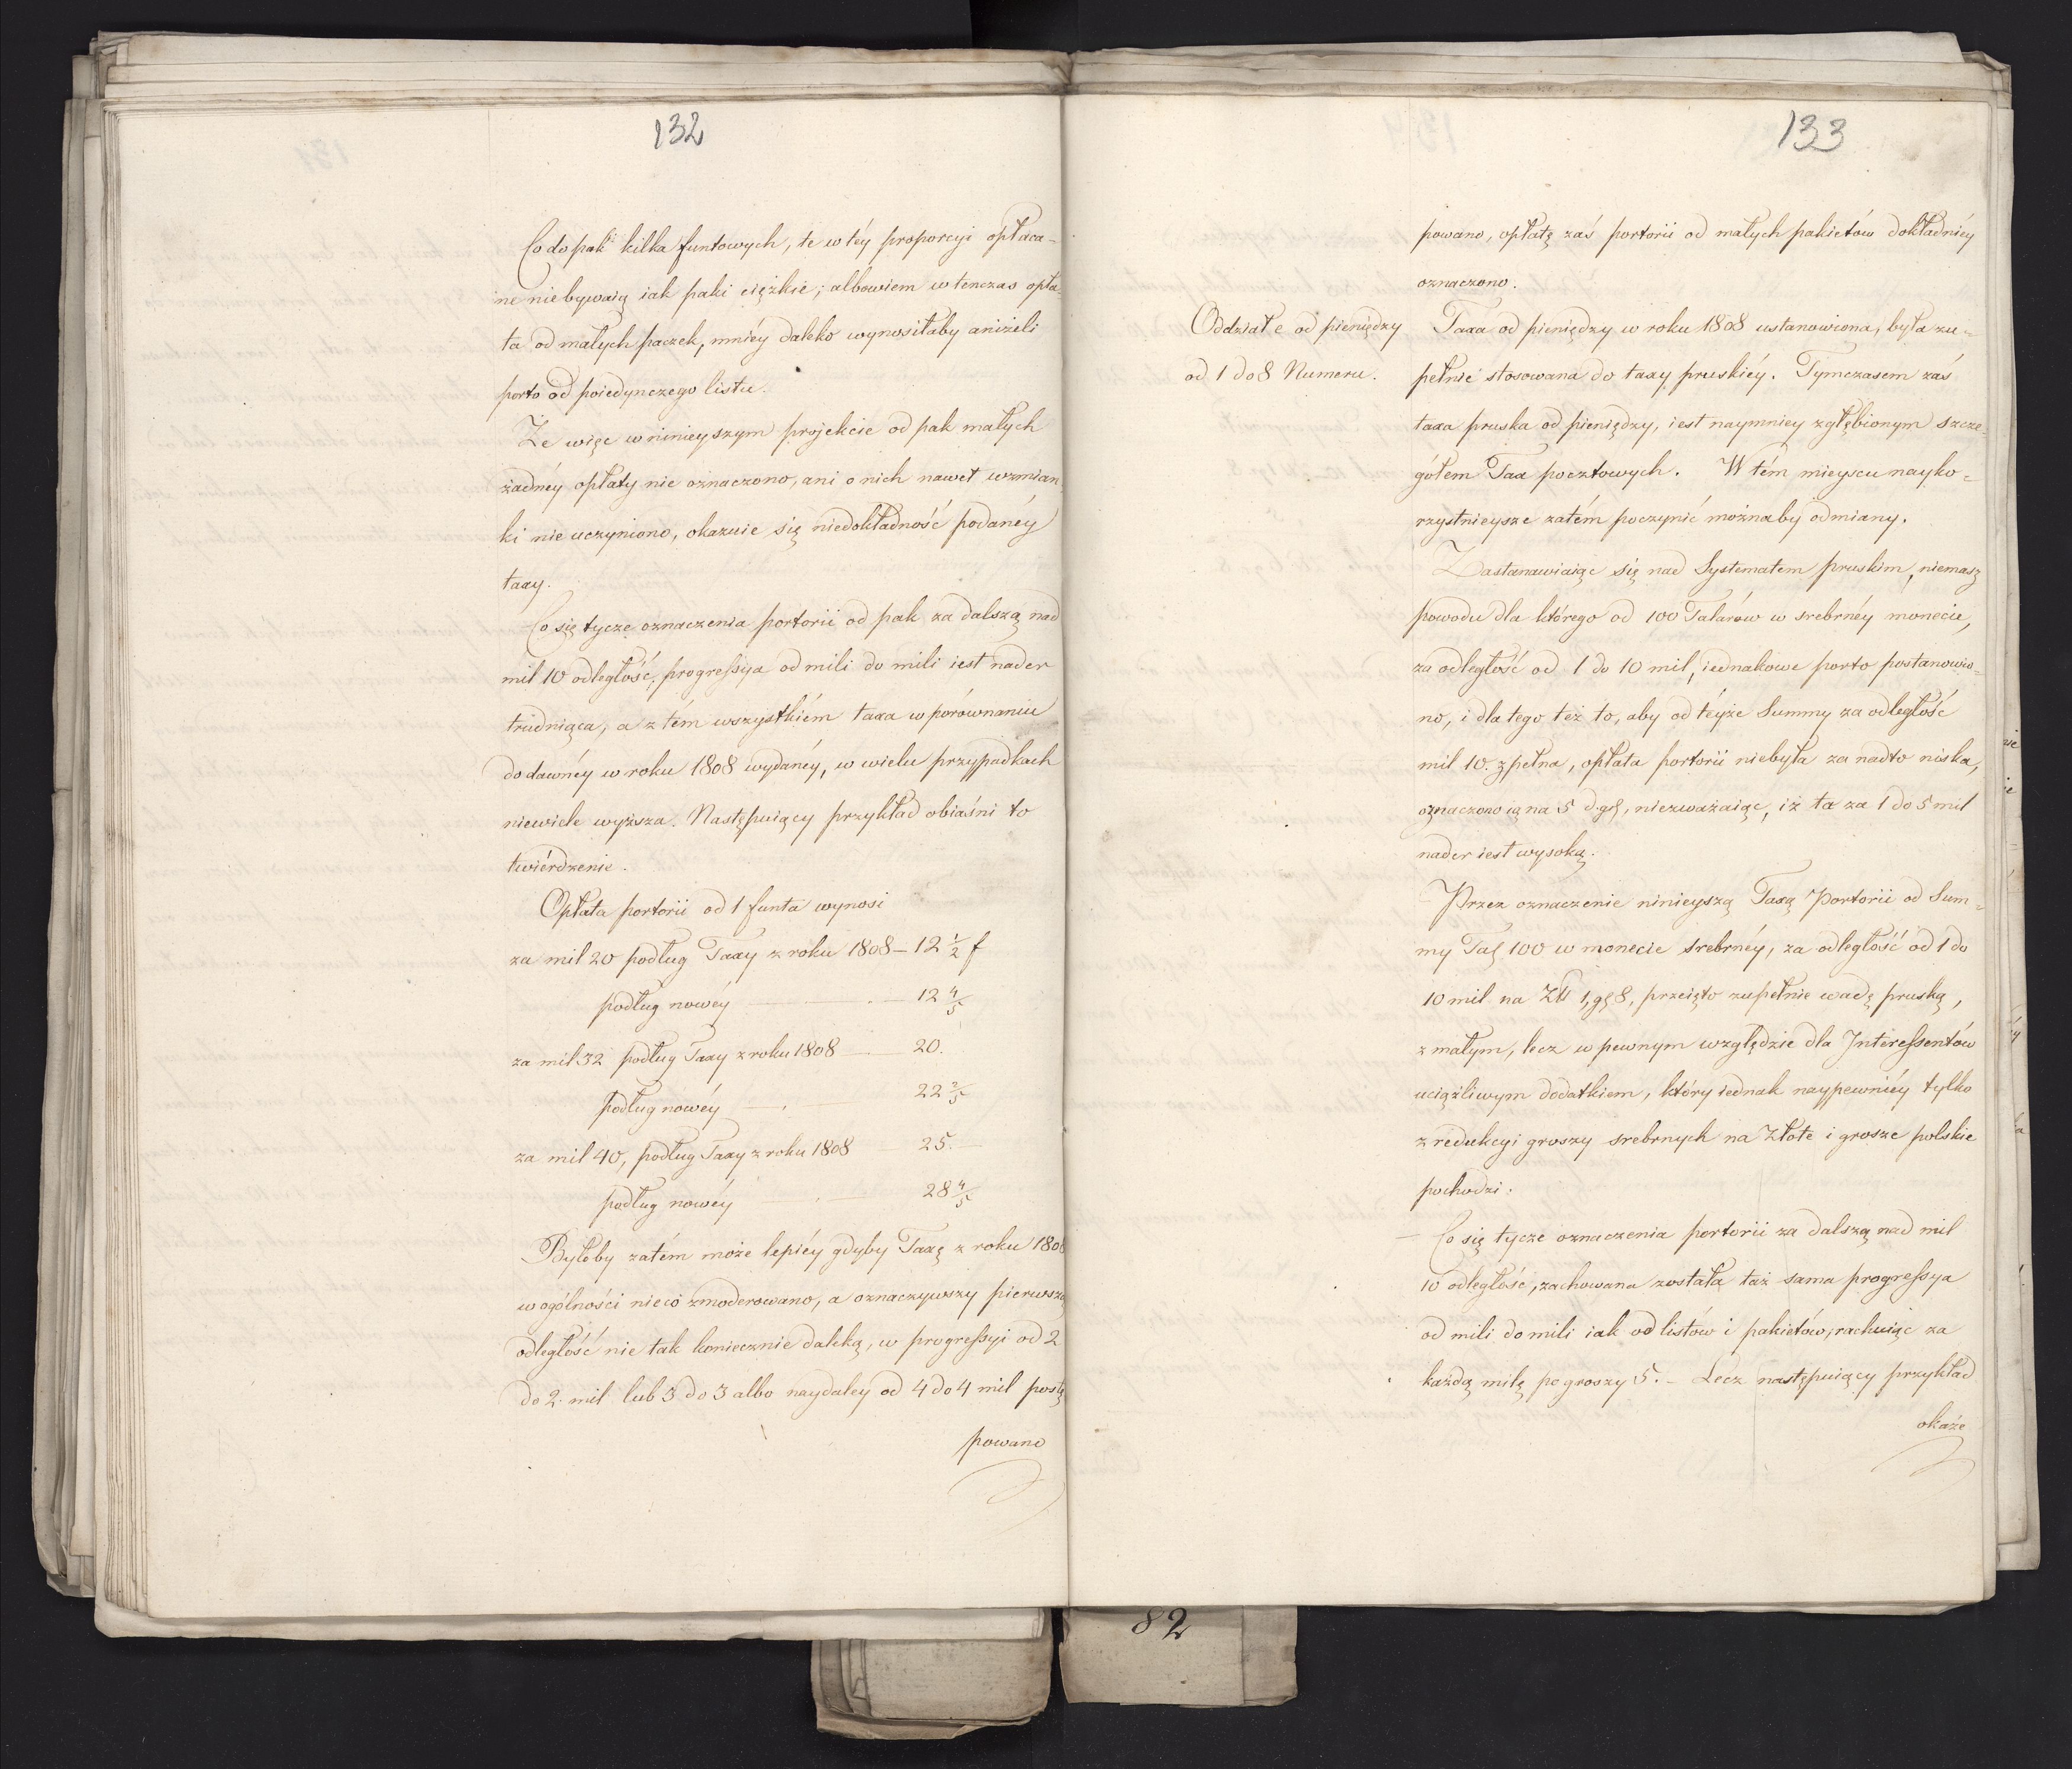 132
Co do pak kilka funtowych, te w téy proporcyi opłaca-
ne niebywaią iak paki ciężkie; albowiem wtenczas opła-
ta od małych paczek, mniéy daleko wynosiłaby aniżeli
porto od poiedynczego listu.
Że więc w ninieyszym projekcie od pak małych
żadnéy opłaty nie oznaczono, ani o nich nawet wzmian-
ki nie uczyniono, okazuie się niedokładność podanéy
taxy.
Co się tycze oznaczenia portorii od pak za dalszą nad
mil 10 odległość, progressya od mili do mili iest nader
trudniąca, a z tém wszystkiém taxa w porównaniu
do dawnéy w roku 1808 wydanéy, w wielu przypadkach
niewiele wyższa. Następuiący przykład obiaśni to
twiérdzenie.
Opłata portorii od 1 funta wynosi
za mil 20 podług Taxy z roku 1808 – 12 1/2 f
podług nowéy — . — 12 4/5
za mil 32 podług Taxy z roku 1808 — 20.
podług nowéy — . — 22 2/5
za mil 40, podług Taxy z roku 1808 — 25. —
podług nowéy — . — 28 4/5
Byłoby zatém może lepiéy gdyby Taxę z roku 1808
w ogólności nieco zmoderowano, a oznaczywszy pierwszą
odległość nie tak koniecznie daleką, w progressyi od 2
do 2. mil lub 3 do 3 albo naydaley od 4 do 4 mil postę
powano
133
powano, opłatę zaś portorii od małych pakietów dokładniéy
oznaczono.
Oddział e od pieniędzy
od 1 do 8 Numeru.
Taxa od pieniędzy w roku 1808 ustanowiona, była zu-
pełnie stosowana do taxy pruskiéy. Tymczasem zaś
taxa pruska od pieniędzy, iest naymniey zgłębionym szcze-
gółem Tax pocztowych. W tém mieyscu nayko-
rzystnieysze zatém poczynić możnaby odmiany.
Zastanawiaiąc się nad Systematem pruskim, niemasz
powodu dla którego od 100 Talarów w srebrnéy monecie,
za odległość od 1 do 10 mil, iednakowe porto postanowio-
no, i dla tego też to, aby od téyże Summy za odległość
mil 10. zpełna, opłata portorii niebyła za nadto niska,
oznaczono ią na 5 d.gl, niezważaiąc, iż ta za 1 do 5 mil
nader iest wysoką.
Przez oznaczenie ninieyszą Taxą Portorii od Sum-
my Tal 100 w monecie srebrnéy, za odległość od 1 do
10 mil na Zlł 1, gl 8, przeięto zupełnie wadę pruską,
z małym, lecz w pewnym względzie dla Interessentów
uciążliwym dodatkiem, który iednak naypewniéy tylko
z redukcyi groszy srebrnych na Złote i grosze polskie
pochodzi.
Co się tycze oznaczenia portorii za dalszą nad mil
10 odległość, zachowana została taż sama progressya
od mili do mili iak od listów i pakietów, rachuiąc za
każdą milę po groszy 5. – Lecz następuiący przykład
okaże
82